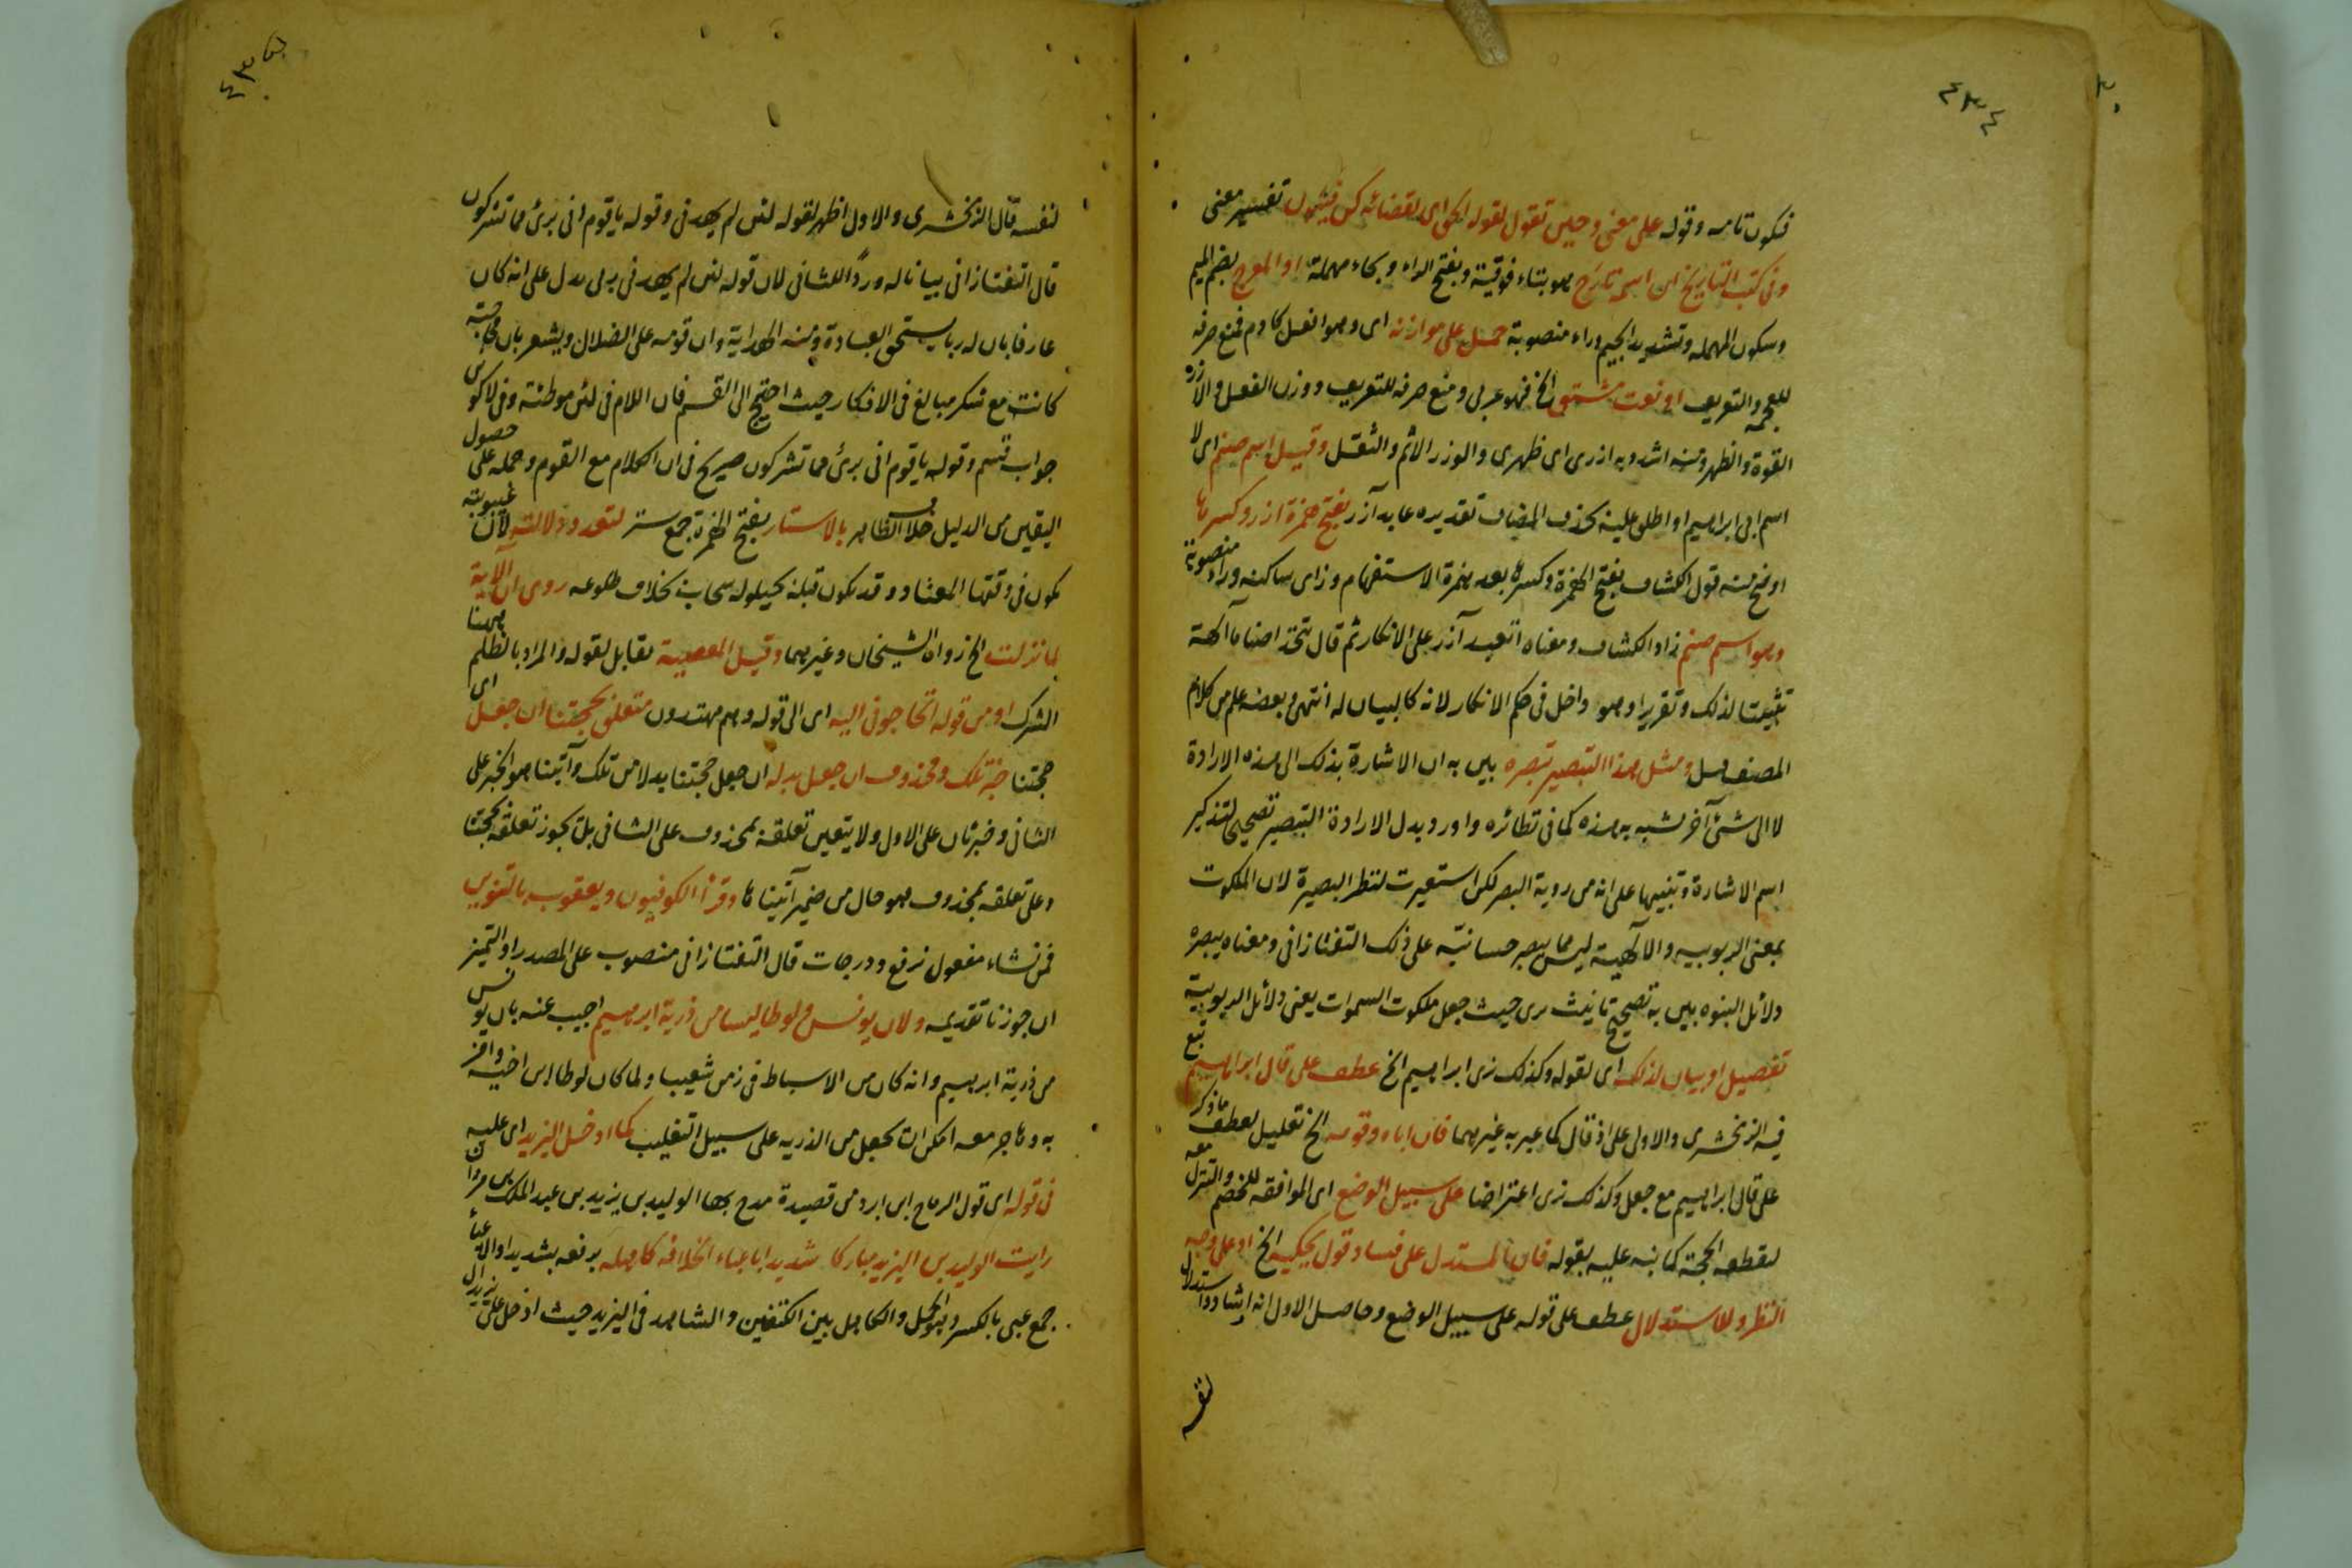 ٤٣٤
فيكون تامه وقوله على معنى وحين تقول لقوله الحق اى لقضائه كن فيكون تفسير معنى
وفى كتب التاريخ ان اسمه تارح هو بتاء فوقية وبفتح الراء وبحاء مهملة او المعوج بضم الميم
وسكون المهمله وتشديد الجيم وراء منصوبة حمل على موازنه اى وهو افعل كادم فمنع صرفه
للعجمة والتعريف او نعت مشتق الخ فهو عربى ومنع صرفه للتعريف ووزن الفعل والازر
القوة والظهر ومنه اشدد به ازرى اى ظهرى والوزر الاثم والثقل وقيل اسم صنم اى لا
اسم ابى ابراهيم او اطلق عليه بحذف المضاف تقديره عابد آزر بفتح همزة ازر وكسرها
اوضح منه قول الكشاف بفتح الهمزة وكسرها بعد همزة الاستفهام وزاى ساكنه وراء منصوبة
وهو اسم صنم زاد الكشاف ومعناه اتعبد آزر على الانكار ثم قال تتخذ اصناما آلهة
تثبيتا لذلك وتقريرا وهو داخل فى حكم الانكار لانه كالبيان له انتهى وبعضه علم من كلام
المصنف ومثل هذا التبصير نبصره بين به ان الاشارة بذلك الى هذه الارادة
لا الى شئ آخر شبه به هذه كما فى نظائره واورد بدل الارادة التبصير تصحيحا لتذكير
اسم الاشارة وتنبيها على انه من روية البصر لكن استعيرت لنظر البصيرة لان الملكوت
بمعنى الربوبيه والالهية ليس مما يبصر حسا نبه على ذلك التفتازانى ومعناه يبصره
دلائل النبوه بين به تصحيح تانيث ترى حيث جعل ملكوت السموات يعنى دلائل الربوبية
تفصيل وبيان لذلك اى لقوله وكذلك نرى ابراهيم الخ عطف على قال ابراهيم تبع
فيه الزمخشرى والاولى على اذ قال كما عبر به غيرهما فان اباه وقومه الخ تعليل لعطف ما ذكر
على قال ابراهيم مع جعل وكذلك نرى اعتراضا على سبيل الوضع اى الموافقه للخصم والتنزل معه
لقطعه الحجة كما نبه عليه بقوله فان المستدل على فساد قول يحكيه الخ او على وجه
النظر والاستدلال عطف على قوله على سبيل الوضع وحاصل الاول انه ارشاد واستدلال
لنفسه
لنفسه قال الزمخشرى والاول اظهر لقوله لئن لم يهدنى وقوله ياقوم انى برئ مما تشركون
قال التفتازانى بيانا له وردا للثانى لان قوله لئن لم يهدنى ربى يدل على انه كان
عارفا بان له ربا يستحق العبادة ومنه الهداية وان قومه على الضلال ويشعر بان محاجته
كانت مع منكر مبالغ فى الانكار حيث احتج الى القسم فان اللام فى لئن موطئة وفى لاكونن
جواب قسم وقوله ياقوم انى برئ مما تشركون صريح فى ان الكلام مع القوم وحمله على حصول
اليقين من الدليل خلاف الظاهر بالاستار بفتح الهمزة جمع ستر لتعدد دلالته لان غيبوبته
تكون فى وقتها المعتاد وقد تكون قبله بحيلولة سحاب بخلاف طلوعه روى ان الآية
لما نزلت الخ رواه الشيخان وغيرهما وقيل المعصية مقابل لقوله والمراد بالظلم ههنا
الشرك او من قوله اتحاجونى اليه اى الى قوله وهم مهتدون متعلق بحجتنا ان جعل اى
حجتنا خبر تلك ومحذوف ان جعل بدله ان جعل حجتنا بدلا من تلك وآتينا هو الخبر على
الثانى وخبر ثان على الاول ولا يتعين تعلقه بمحذوف على الثانى بل يجوز تعلقه بحجتنا
وعلى تعلقه بمحذوف هو حال من ضمير آتيناها وقرأ الكوفيون ويعقوب بالتنوين
فمن نشاء مفعول نرفع ودرجات قال التفتازانى منصوب على المصدر او التميز
ان جوزنا تقديمه ولان يونس ولوطا ليسا من ذرية ابرهيم اجيب عنه بان يونس
من ذرية ابرهيم وانه كان من الاسباط فى زمن شعيب ولما كان لوطا ابن اخيه وآمن
به وهاجر معه امكن ان يجعل من الذريه على سبيل التغليب كما ادخل اليزيد اى عليه
فى قوله اى قول الرماح ابن ابرد من قصيدة مدح بها الوليد بن يزيد بن عبد الملك بن مروان
رايت الوليد بن اليزيد مباركا شديدا باعباء الخلافه كاهله برفعه بشديدا والاعباء
جمع عبى بالكسر وهو الحمل والكاهل بين الكتفين والشاهد فى اليزيد حيث ادخل على يزيد ال